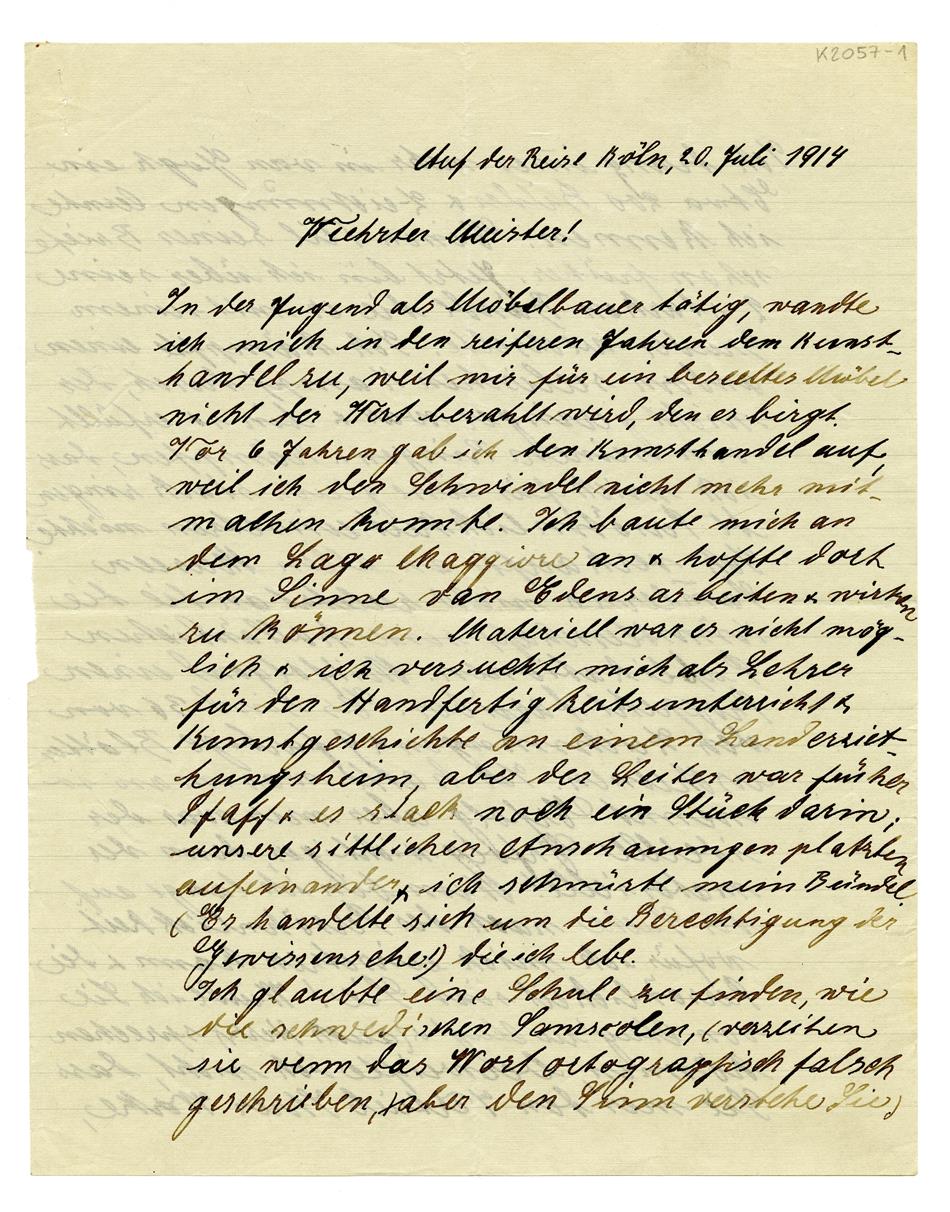 K2057-1
Auf der Reise Köln, 20. Juli 1914
Verehrter Meister!
In der Jugend als Möbelbauer tätig, wandte
ich mich in den reiferen Jahren dem Kunst-
handel zu, weil mir für ein beseeltes Möbel
nicht der Wert bezahlt wird, den es birgt.
Vor 6 Jahren gab ich den Kunsthandel auf,
weil ich den Schwindel nicht mehr mit-
machen konnte. Ich baute mich an
dem Lago Maggiore an & hoffte dort
im Sinne van Edens arbeiten & wirken
zu können. Materiell war es nicht mög-
lich & ich versuchte mich als Lehrer
für den Handfertigkeitsunterricht &
Kunstgeschichte an einem Landerzie-
hungsheim, aber der Leiter war früher
Pfaff & es stack noch ein Stück darin;
unsere sittlichen Anschauungen platzten
aufeinander & ich schnürte mein Bündel.
(Es handelte sich um die Berechtigung der
Gewissensehe!) die ich lebe.
Ich glaubte eine Schule zu finden, wie
die schwedischen Samscolen, (verzeihen
sie wenn das Wort ortographisch falsch
geschrieben, aber den Sinn verstehe Sie)